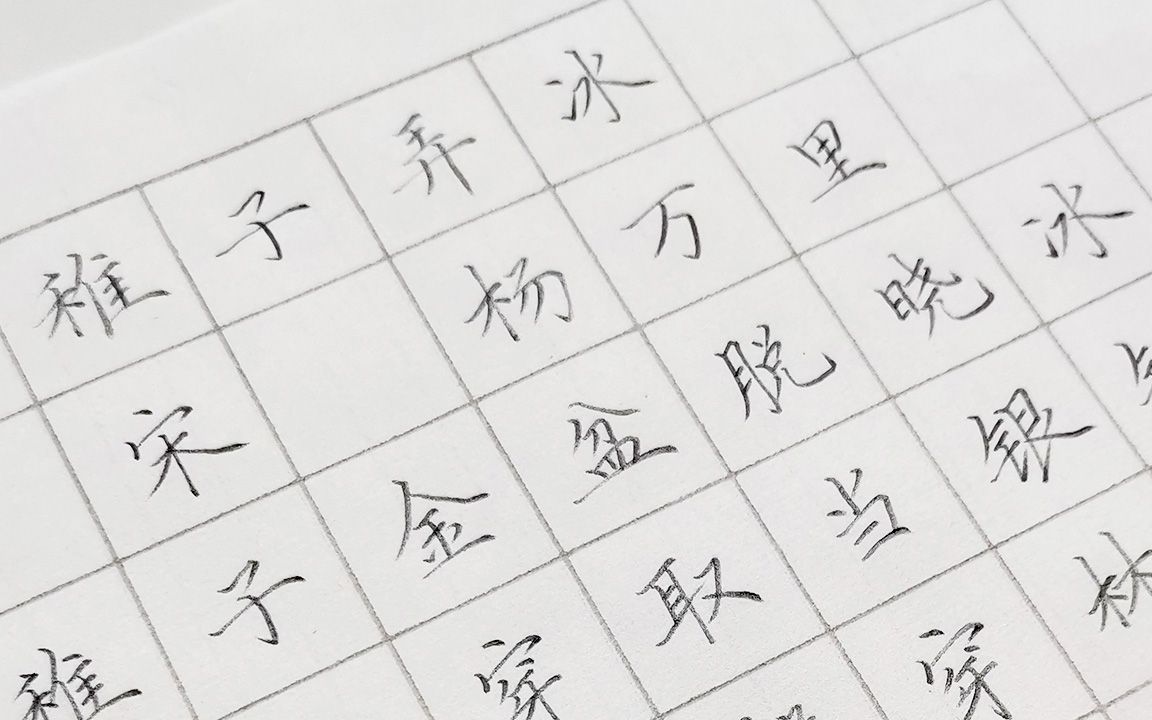 稚子弄冰
宋 杨万里
稚子金盆脱晓冰
穿取当银
穿林